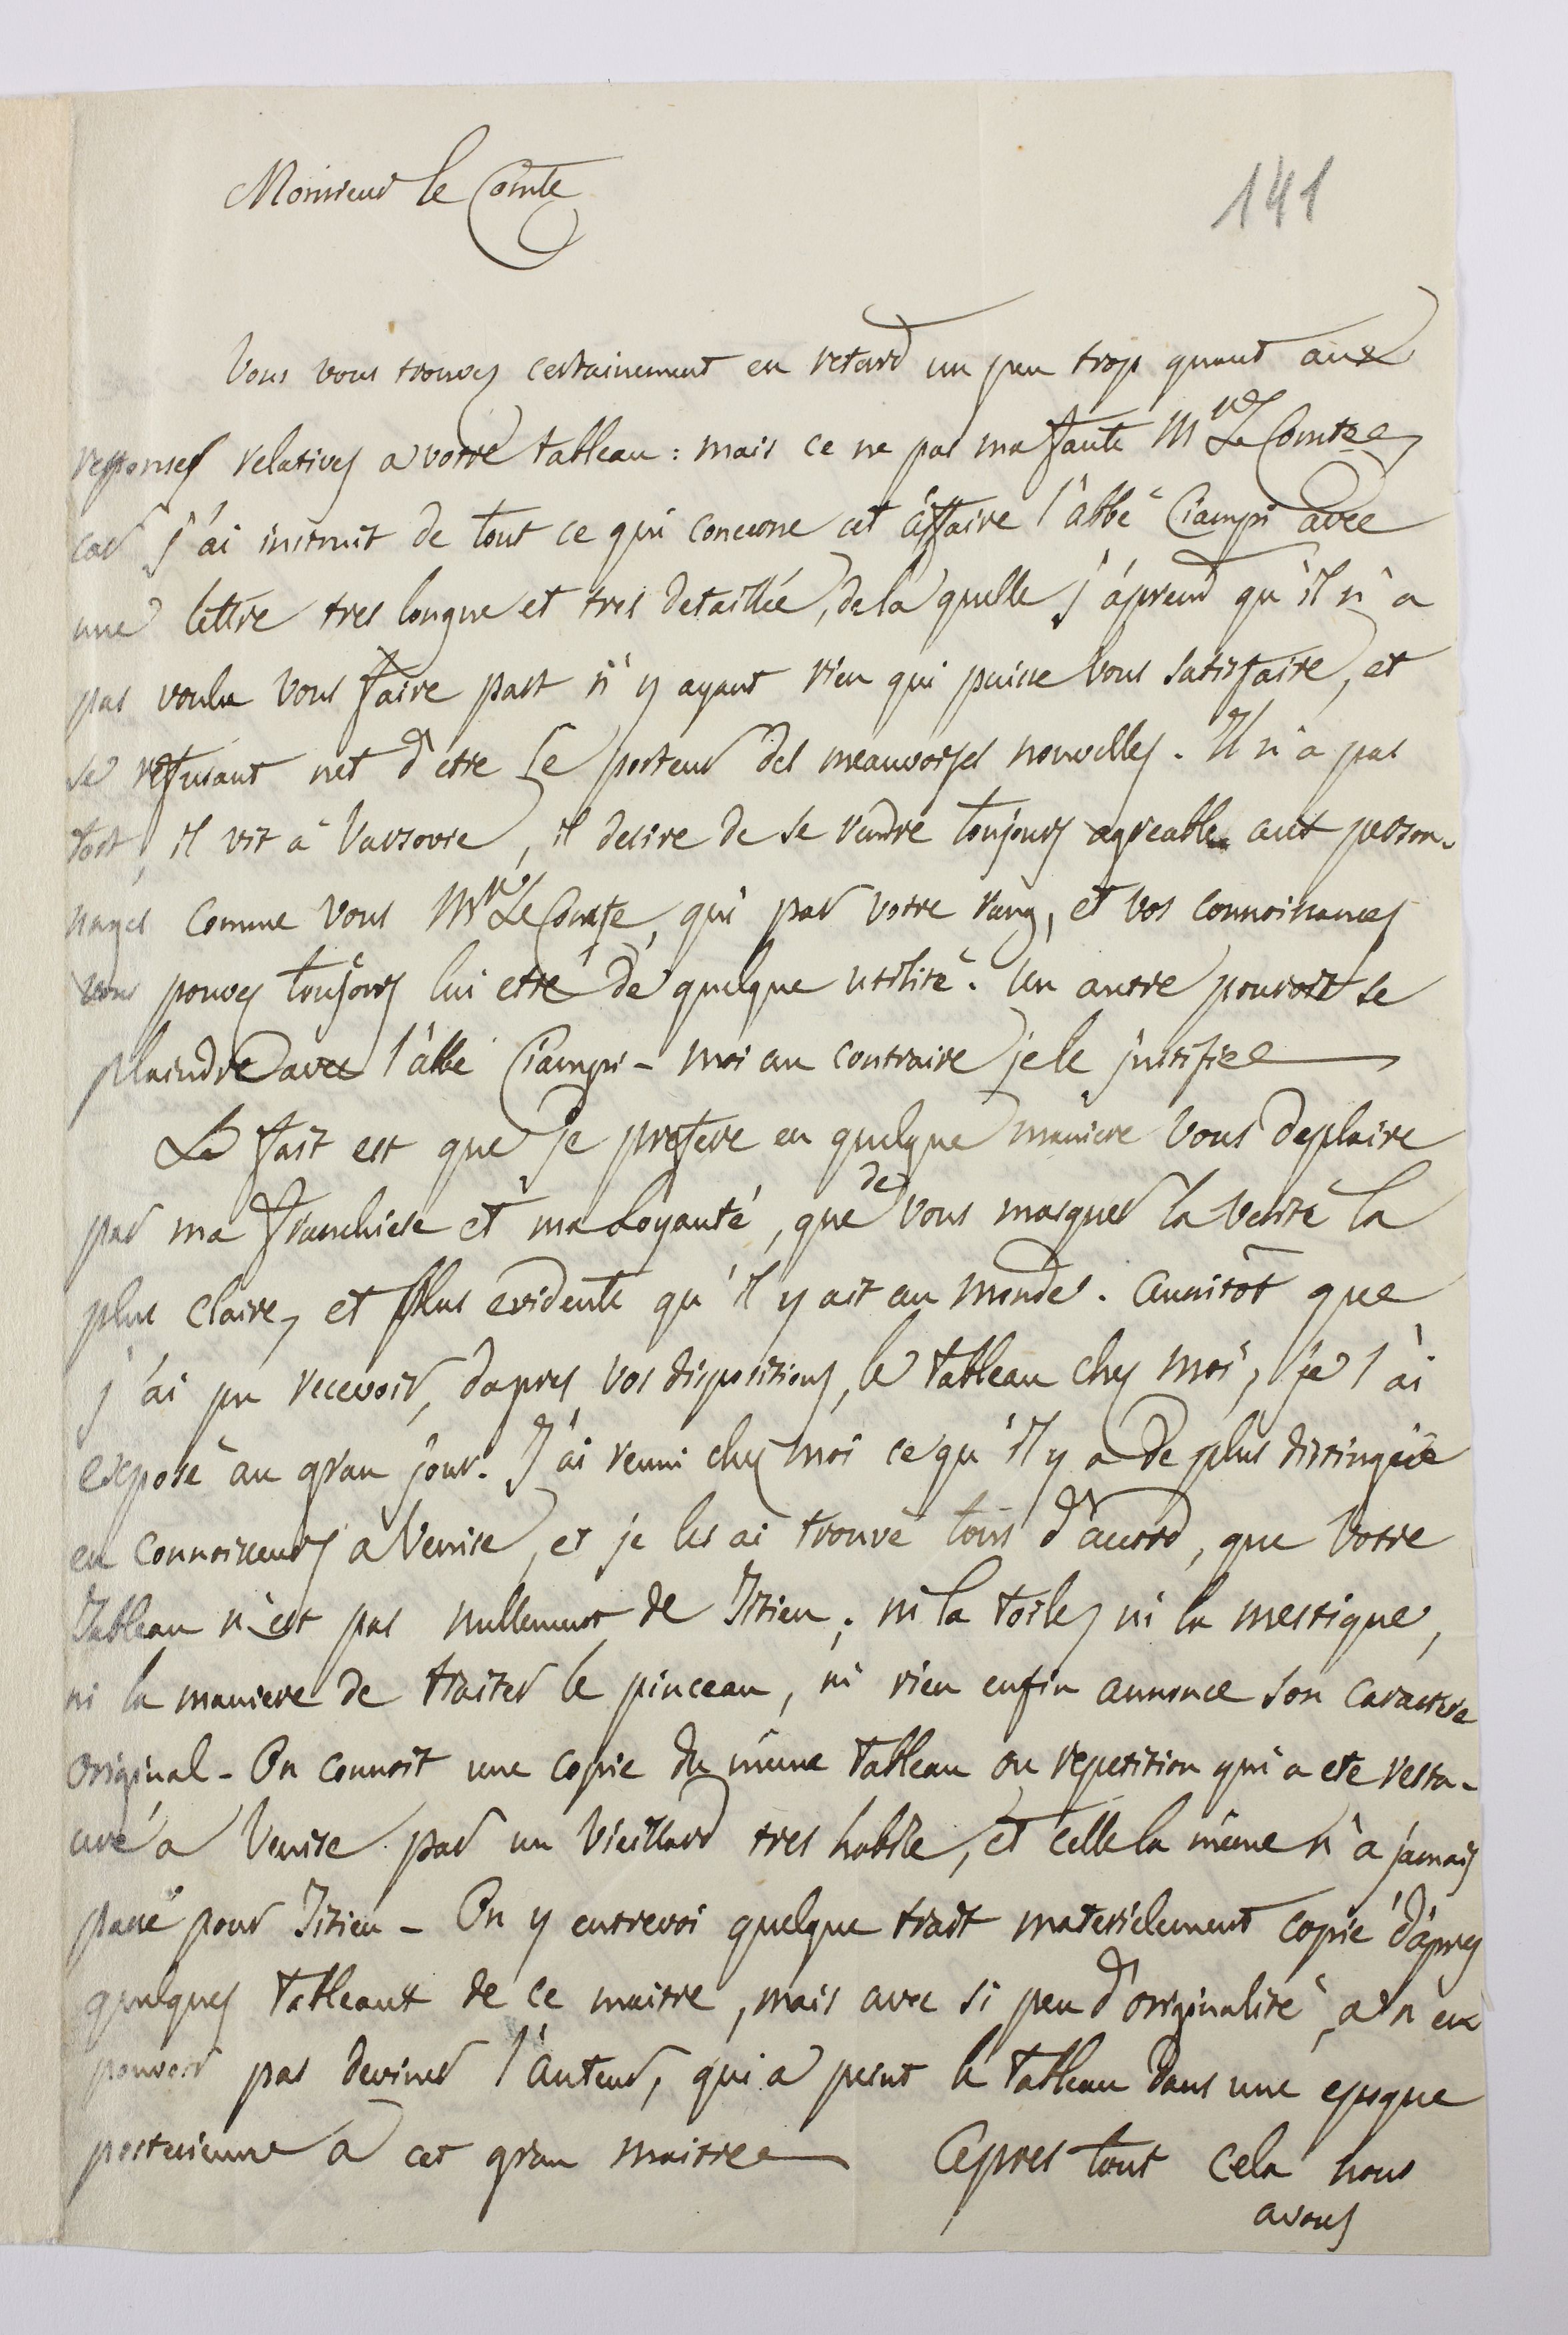 Monsieur le Comte
141
Vous vous trouvez certainement en retard un peu trop quant aux
reponses relatives a votre tableau: mais ce ne pas ma faute Mr Le Comte,
car j'ai instruit de tout ce qui concerne cet affaire l'abbé Ciampi avec
une lettre tres longue et tres detaillée, dela quelle j'aprend qu'il n'a
pas voulu vous faire part n'y ayant rien qui puisse vous satisfaire, et
se refusant net d'etre le porteur des meauvaises nouvelles. Il n'a pas
tort, il vit à Varsovie, il desire de se rendre toujours agreable aux person-
nages comme vous Mr Le Comte, qui par votre rang, et vos connoissances
vous pouvez toujours lui etre de quelque utilité. Un autre pouroit se
plaindre avec l'abbé Ciampi - moi au contraire je le justifie
Le fait est que je prefere en quelque maniere vous deplaire
par ma franchise et ma loyauté, que de vous masquer la verité la
plus claire, et plus evidente qu'il y ait au monde. Aussitôt que
j'ai pu recevoir, dapres vos dispositions, le tableau chez moi, je l'ai
exposé au gran jour. J'ai reuni chez moi ce qu'il y a de plus distingué
en connoisseurs a Venise, et je les ai trouvé tous d'accord, que votre
Tableau n'est pas nullement de Titien; ni la toile, ni la mestique,
ni la maniere de traiter le pinceau, ni rien enfin annonce son caractere
original - On connoit une copie du même tableau ou repetition qui a ete resta-
uré a Venise par un vieillard tres habile, et celle la même n'a jamais
passé pour Titien - On y entrevoi quelque trait materielement copié d'apres
quelques tableaux de ce maitre, mais avec si peu d'originalité, a n'en
pouvoir pas deviner l'auteur, qui a peint le tableau dans une epoque
posterieure a cet gran maitre Apres tout cela nous
avons